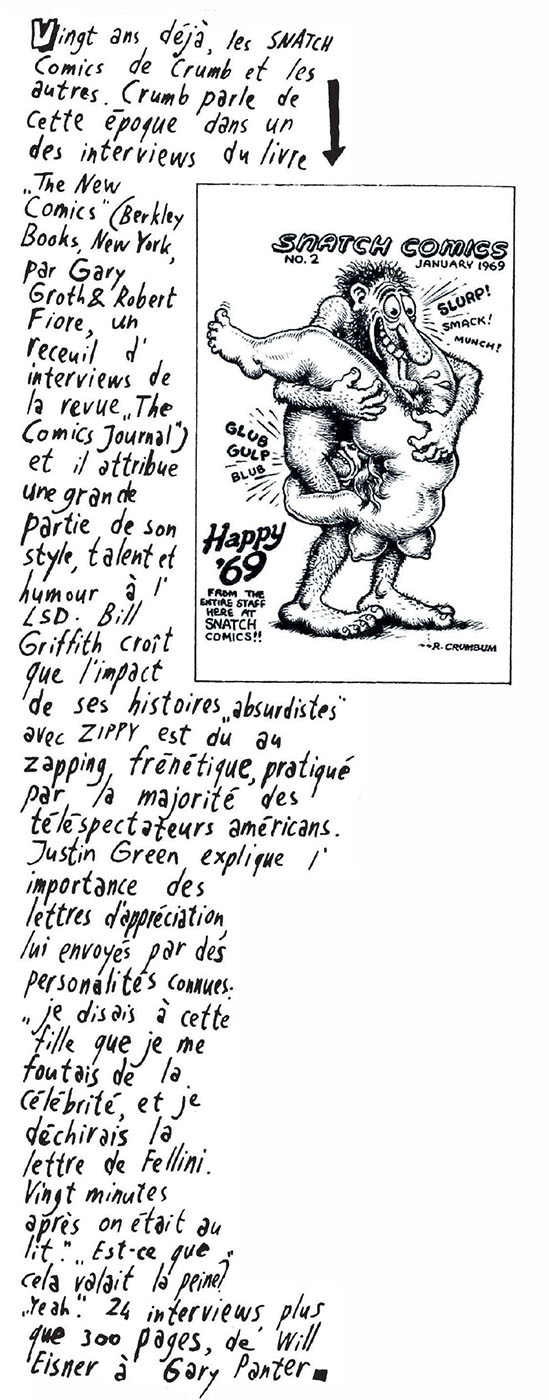 Vingt ans déjà, les SNATCH
Comics de Crumb et les
autres. Crumb parle de
cette époque dans un
des interviews du livre
„The New
Comics" (Berkley
Books, New York,
par Gary
Groth & Robert
Fiore, un
receuil d'
interviews de
la revue „The
Comics Journal")
et il attribue
une grande
partie de son
style, talent et
humour à l'
LSD. Bill
Griffith croît
que l'impact
de ses histoires „absurdistes"
avec ZIPPY est dû au
zapping frénétique, pratiqué
par la majorité des
téléspectateurs américans.
Justin Green explique l'
importance des
lettres d'appréciation,
lui envoyés par des
personalités connues.
„je disais à cette
fille que je me
foutais de la
célébrité, et je
déchirais la
lettre de Fellini.
Vingt minutes
après on était au
lit." Est-ce que
cela valait la peine?
„Yeah". 24 interviews, plus
que 300 pages, de Will
Eisner à Gary Panter
SNATCH COMICS
NO. 2 JANUARY 1969
SLURP!
SMACK!
MUNCH!
GLUB
GULP
BLUB
Happy
'69
FROM THE
ENTIRE STAFF
HERE AT
SNATCH
COMICS!!
R. CRUMBUM